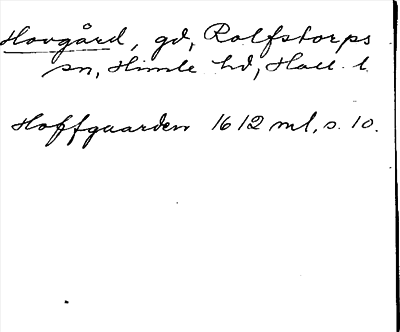 Hovgård, gd, Rolfstorps
sn, Himle hd, Hall. l.
Hoffgaarden 1612 ml, s. 10.